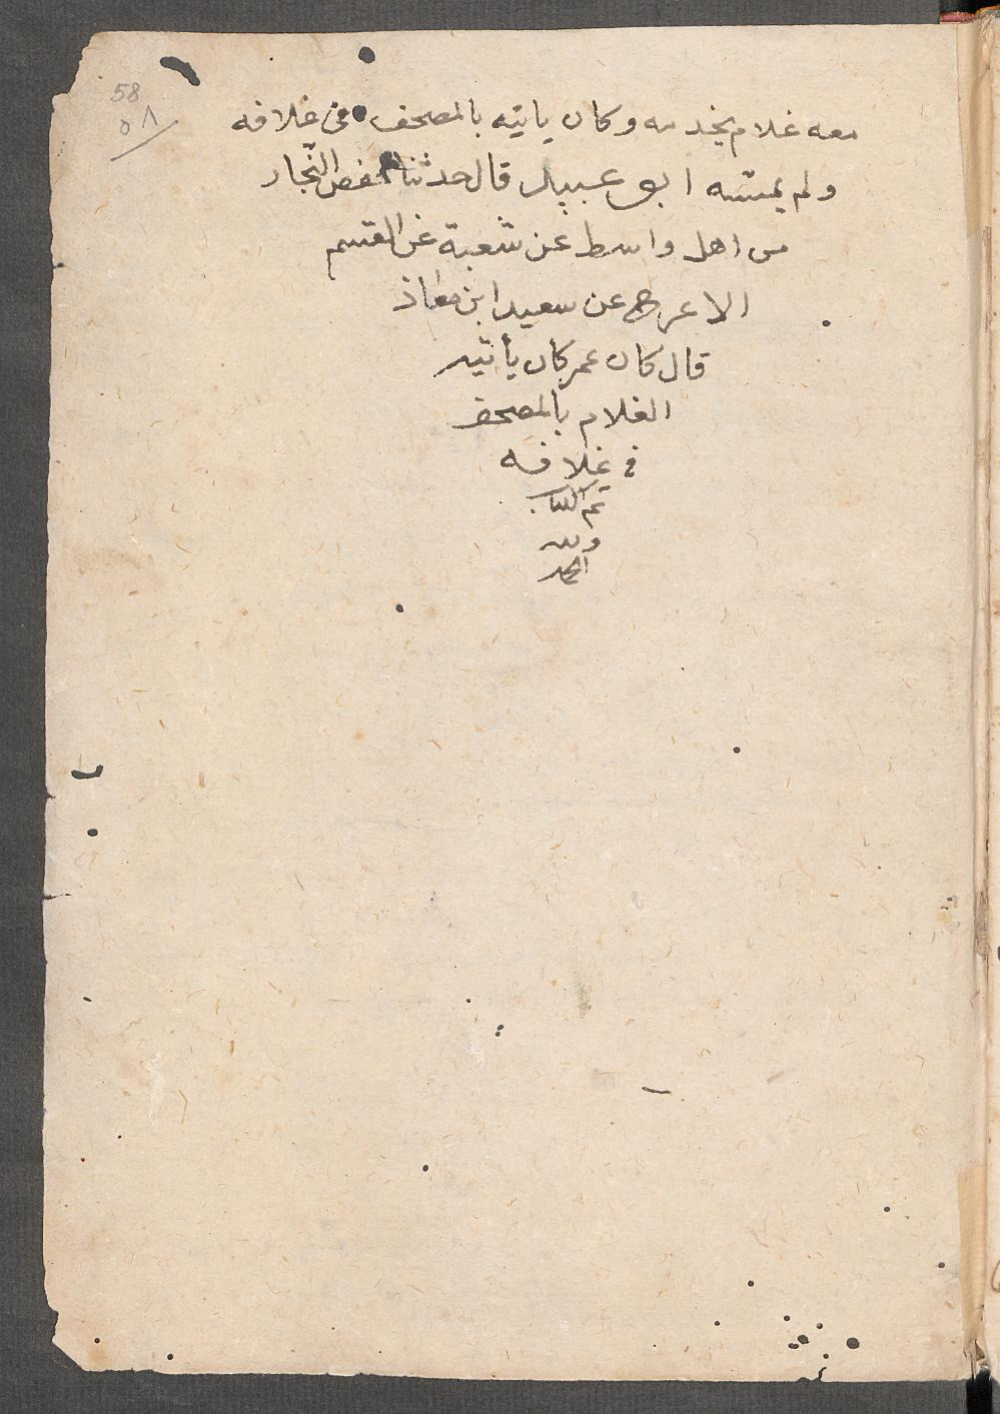 58
٥٨
معه غلام يخدمه وكان ياتيه بالمصحف فى غلافه
ولم يمسه ابو عبيد قال حدثنا حفص النجار
من اهل واسط عن شعبة عن القسم
الاعرج عن سعيد ابن معاذ
قال كان عمر كان يأتيه
الغلام بالمصحف
فى غلافه
تم الكتاب
ولله
الحمد